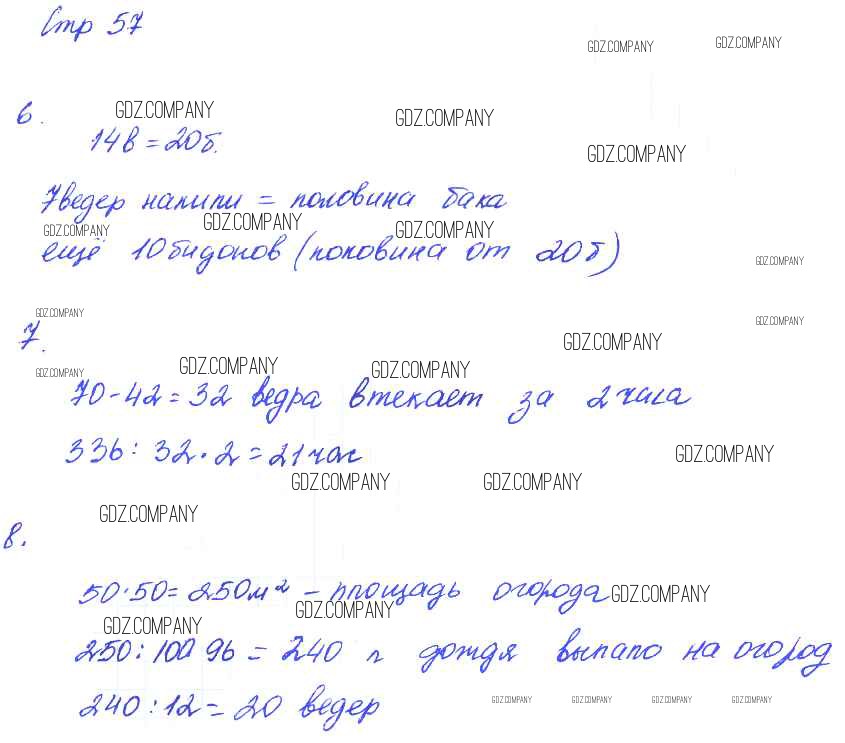 Стр 57
GDZ.COMPANY GDZ.COMPANY
6.
GDZ.COMPANY GDZ.COMPANY
14в = 20б.
GDZ.COMPANY
7 ведер налили = половина бака
GDZ.COMPANY GDZ.COMPANY GDZ.COMPANY
ещё 10 бидонов (половина от 20б)
GDZ.COMPANY
GDZ.COMPANY GDZ.COMPANY
7.
GDZ.COMPANY
GDZ.COMPANY GDZ.COMPANY GDZ.COMPANY
70-42=32 ведра втекает за 2 часа
336:32·2=21 час
GDZ.COMPANY
GDZ.COMPANY GDZ.COMPANY
GDZ.COMPANY
8.
50·50=250м² - площадь огорода
GDZ.COMPANY
GDZ.COMPANY
GDZ.COMPANY
250:100 96 = 240 л дождя выпало на огород
240:12=20 ведер
GDZ.COMPANY GDZ.COMPANY GDZ.COMPANY GDZ.COMPANY